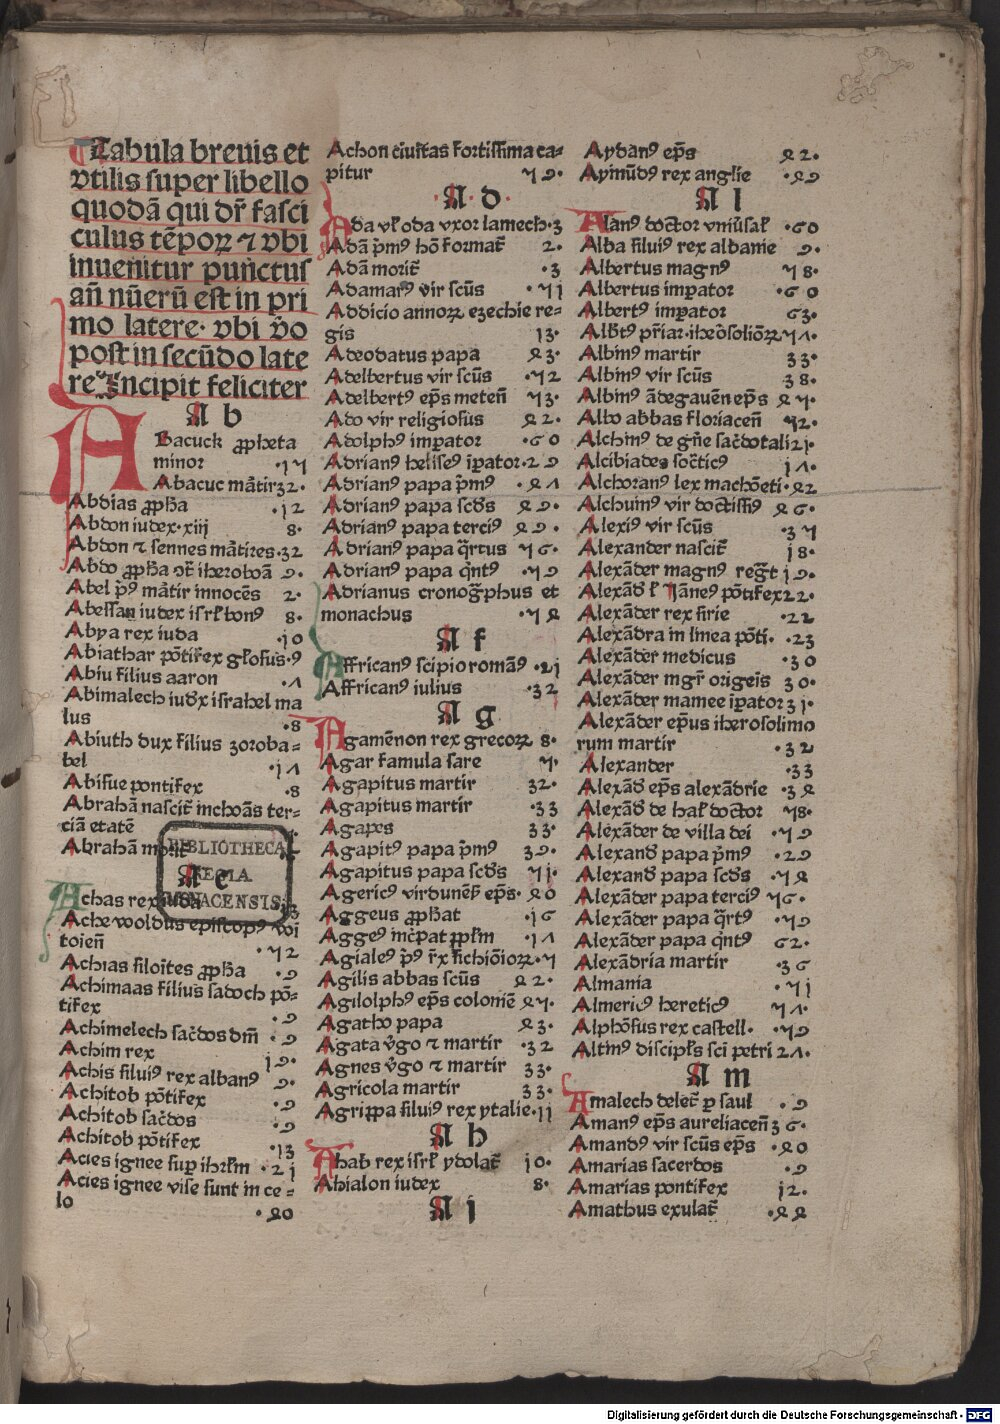 Tabula breuis et
vtilis super libello
quodā qui dr̄ fasci
culus tēpoꝝ ⁊ vbi
inuenitur punctus
an̄ nūerū est in pri
mo latere· vbi v̄o
post in secūdo late
re Incipit feliciter
A b
Abacuck ꝓpheta
minor ·17
Abacuc mātir 32·
Abdias ꝓph̄a ·12
Abdon iudex·xiij 8·
Abdon ⁊ sennes mātires·32
Abdo ꝓph̄a ꝯt̄ iheroboā 9·
Abel p̄ꝰ mātir innocēs 2·
Abessan iudex isrł bonꝰ 8·
Abya rex iuda ·10
Abiathar pōtifex głosus·9
Abiu filius aaron ·4
Abimalech iudx israhel ma
lus ·8
Abiuth dux filius zoroba-
bel ·14
Abisue pontifex ·8
Abrahā nascit̄ inchoās ter-
ciā etatē
Abrahā morit̄
A c
Achas rex iuda 13
Achewoldus episcopꝰ wi
toien̄ ·72
Achias siloites ꝓph̄a ·9
Achimaas filius sadoch pō-
tifex ·9
Achimelech sac̄dos dm̄ ·9
Achim rex 19·
Achis siluiꝰ rex albanꝰ 9·
Achitob pōtifex ·9
Achitob sac̄dos ·9
Achitob pōtifex ·13
Acies ignee suꝑ ihrłm ·21
Acies ignee vise sunt in ce-
lo ·50
Achon ciuitas fortissima ca-
pitur 79·
A·d·
Ada vł oda vxor lamech·3
Adā p̄mꝰ hō format̄ 2·
Adā morit̄ ·3
Adamarꝰ vir scūs ·71
Addicio annoꝝ ezechie re-
gis 13·
Adeodatus papa 53·
Adelbertus vir scūs ·72
Adelbertꝰ ep̄s meten̄ 73·
Ado vir religiosus 52·
Adolphꝰ imꝑator ·60
Adrianꝰ heliseꝰ iꝑator·29
Adrianꝰ papa p̄mꝰ ·54
Adrianꝰ papa scd̄s 59·
Adrianꝰ papa terciꝰ 59·
Adrianꝰ papa q̄rtus 76·
Adrianꝰ papa q̄ntꝰ ·79
Adrianus cronog̃phus et
monachus ·75
A f
Affricanꝰ scipio romāꝰ ·21
Affricanꝰ iulius ·32
A g
Agamēnon rex grecoꝝ 8·
Agar famula sare 7·
Agapitus martir 32·
Agapitus martir ·33
Agapes 33·
Agapitꝰ papa p̄mꝰ 39·
Agapitus papa scd̄s 71·
Agericꝰ virdunen̄ ep̄s· 50
Aggeus ꝓph̄at ·16
Aggeꝰ inc̄pat ꝓpłm ·14
Agialeꝰ p̄ꝰ r̄x sichiōioꝝ·7
Agilis abbas scūs 52·
Agilolphꝰ ep̄s colonie 57·
Agatho papa 53·
Agata v̄go ⁊ martir ·32
Agnes v̄go ⁊ martir 33·
Agricola martir 33·
Agrippa siluiꝰ rex ytalie·11
A h
Ahab rex isrł ydolat̄ 10·
Ahialon iudex 8·
A i
Aydanꝰ ep̄s 52·
Aymūdꝰ rex anglie ·59
A l
Alanꝰ doctor vniūsał ·60
Alba siluiꝰ rex albanie 9·
Albertus magnꝰ 78·
Albertus imꝑator ·60
Albertꝰ imꝑator 63·
Albt̄ꝰ pr̄iar·iherosolioꝝ74·
Albinꝰ martir 33·
Albinꝰ vir scūs 38·
Albinꝰ ādegauēn ep̄s 57·
Albo abbas floriacen̄ 72·
Alchimꝰ de gn̄e sac̄dotali21·
Alcibiades soc̄ticꝰ 14·
Alchoranꝰ lex machōeti·52
Alchuinꝰ vir doctissiꝰ 56·
Alexiꝰ vir scūs ·37
Alexander nascit̄ 18·
Alexāder magnꝰ reg̃t 19·
Alexād̄ ł Iāneꝰ pōtifex22·
Alexāder rex sirie ·22
Alexādra in linea pōti· ·23
Alexāder medicus ·30
Alexāder mgr̄ origeis 30·
Alexāder mamee iꝑator31·
Alexāder ep̄us iherosolimo
rum martir ·32
Alexander ·33
Alexād̄ ep̄s alexādrie ·35
Alexād̄ de hał doctor 78·
Alexāder de villa dei ·79
Alexand̄ papa p̄mꝰ ·29
Alexand̄ papa scd̄s ·75
Alexāder papa terciꝰ 76·
Alexāder papa q̄rtꝰ ·79
Alexāder papa q̄ntꝰ 62·
Alexādria martir ·36
Almania ·71
Almericꝰ hereticꝰ 74·
Alphōsus rex castell· ·79
Altinꝰ discipłs sci petri 24·
A m
Amalech delet̄ ꝑ saul ·9
Amanꝰ ep̄s aureliacen̄36·
Amandꝰ vir scūs ep̄s ·50
Amarias sacerdos ·9
Amarias pontifex 12·
Amathus exulat̄ ·55
BIBLIOTHECA
REGIA
MONACENSIS
Digitalisierung gefördert durch die Deutsche Forschungsgemeinschaft - DFG